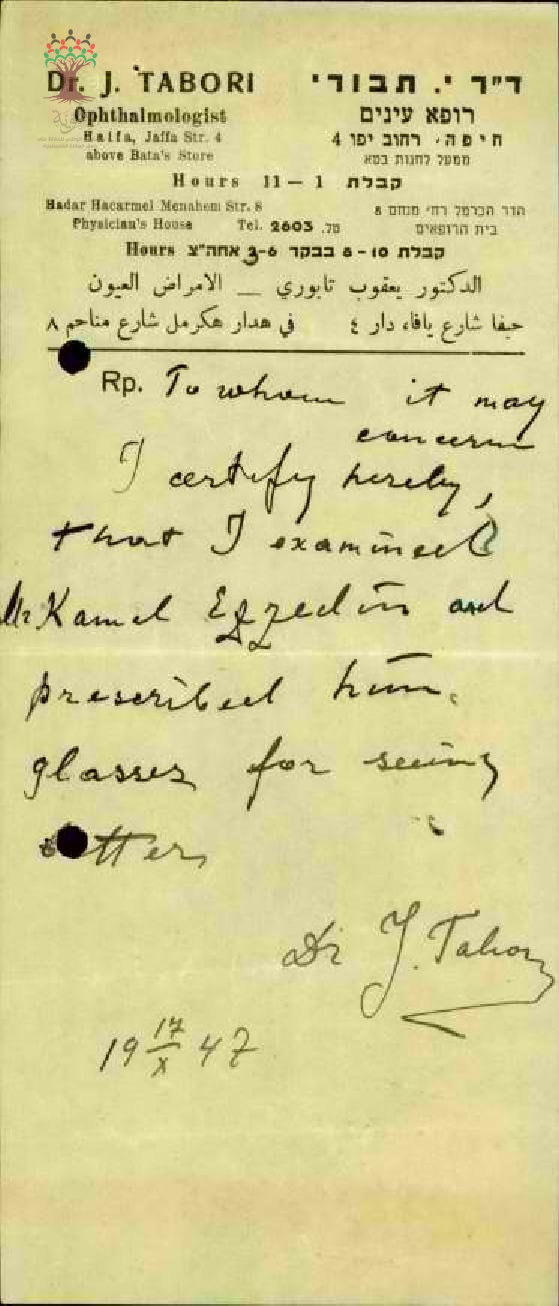 Dr. J. TABORI ד"ר י. תבורי
Ophthalmologist רופא עינים
Haifa, Jaffa Str. 4 חיפה, רחוב יפו 4
above Bata's Store ממעל לחנות בטא
Hours 11 - 1 קבלת
Hadar Hacarmel Menahem Str. 8 הדר הכרמל רח' מנחם 8
Physician's House Tel. 2603 טל. בית הרופאים
Hours 3-6 אחה"צ 8-10 בבקר קבלת
الدكتور يعقوب تابوري — الامراض العيون
حيفا شارع يافا، دار ٤ في هدار هكرمل شارع مناحم ٨
Rp. To whom it may
concern
I certify hereby,
that I examined
Mr Kamel Ezzedin and
prescribed him
glasses for seeing
better
Dr J. Tabori
19 17/X 47